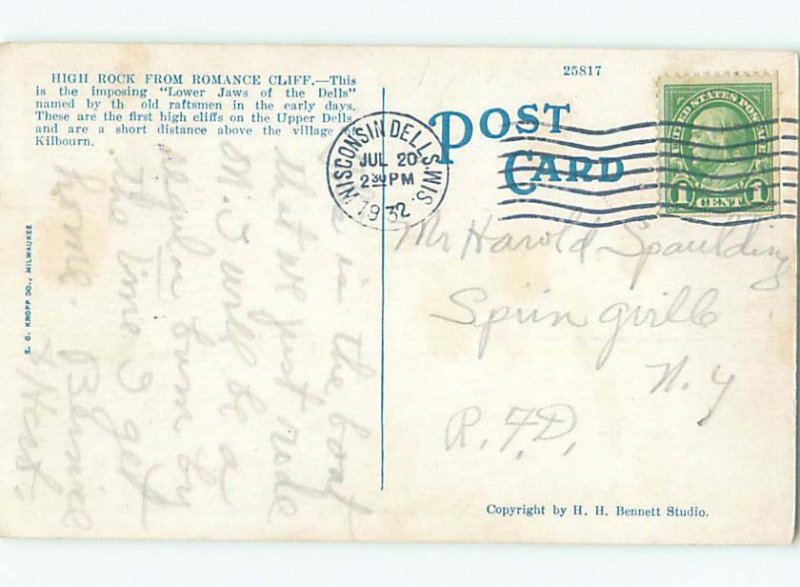 HIGH ROCK FROM ROMANCE CLIFF.—This
is the imposing "Lower Jaws of the Dells"
named by th old raftsmen in the early days.
These are the first high cliffs on the Upper Dells
and are a short distance above the village
Kilbourn.
25817
POST
CARD
WISCONSIN DELLS, WIS.
JUL 20
2 30 PM
1932
UNITED STATES POSTAGE
1 CENT 1
Mr Harold Spaulding
Springville
N. Y
R.F.D.
is in the boat
that we just rode
in. I will be a
regular burn by
the time I get
home. Bernice
E. C. KROPP CO., MILWAUKEE
Copyright by H. H. Bennett Studio.